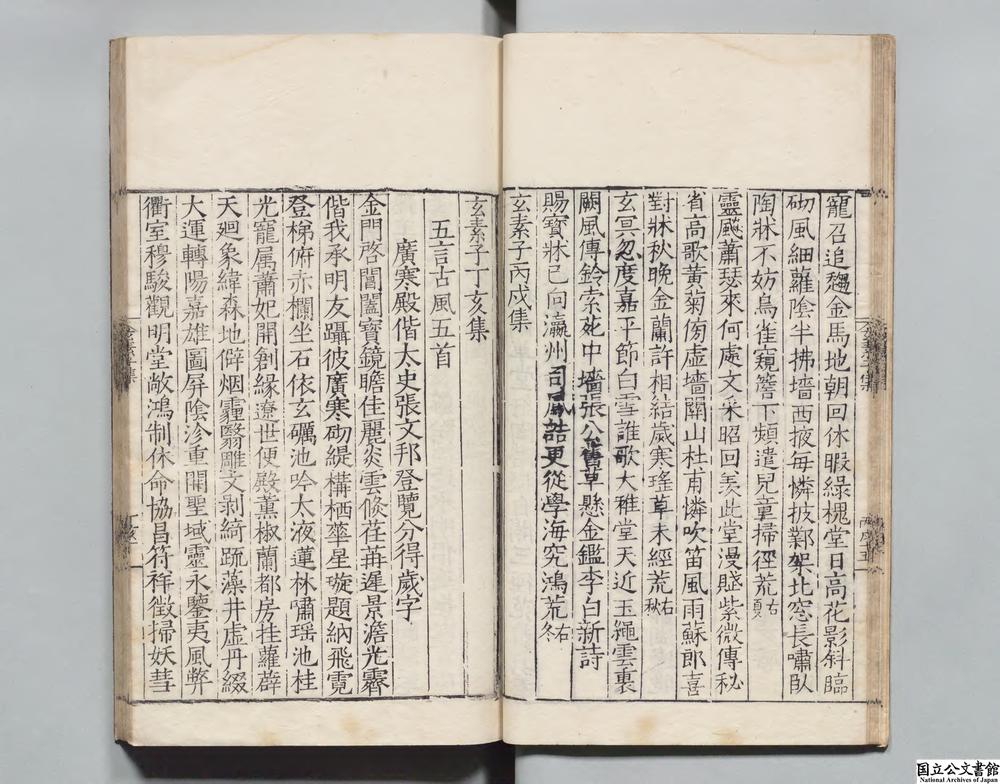 寵召追趨金馬地朝回休暇綠槐堂日高花影斜臨
砌風細蘿陰半拂墻西掖每憐披鄴架北窓長嘯臥
陶牀不妨鳥雀窺簷下頻遣兒童掃徑荒右夏
靈飈蕭瑟來何處文采昭回羡此堂漫賦紫微傳秘
省高歌黃菊傍虛墻關山杜甫憐吹笛風雨蘇郎喜
對牀秋晚金蘭許相結歲寒瑤草未經荒右秋
玄冥忽度嘉平節白雪誰歌大稚堂天近玉繩雲裏
闕風傳鈴索禁中墻張公舊草懸金鑑李白新詩
賜寶牀已向瀛州司誥更從學海究鴻荒右冬
玄素子丙戌集
玄素子丁亥集
五言古風五首
廣寒殿偕太史張文邦登覽分得歲字
金門啓閶闔寶鏡瞻佳麗炎雲倏荏苒遲景澹光霽
偕我承明友躡彼廣寒砌緹構栖華星璇題納飛霓
登梯俯赤欄坐石依玄礪池吟太液蓮林嘯瑶池桂
光寵属蕭妃開創緣遼世便殿薰椒蘭都房挂蘿薜
天廻象緯森地僻烟霾翳雕文剥綺䟽藻井虚丹綴
大運轉陽嘉雄圖屏陰沴重開聖域靈永鑒夷風弊
衢室穆駿觀明堂敞鴻制休命協昌符祥徵掃妖彗
国立公文書館
National Archives of Japan